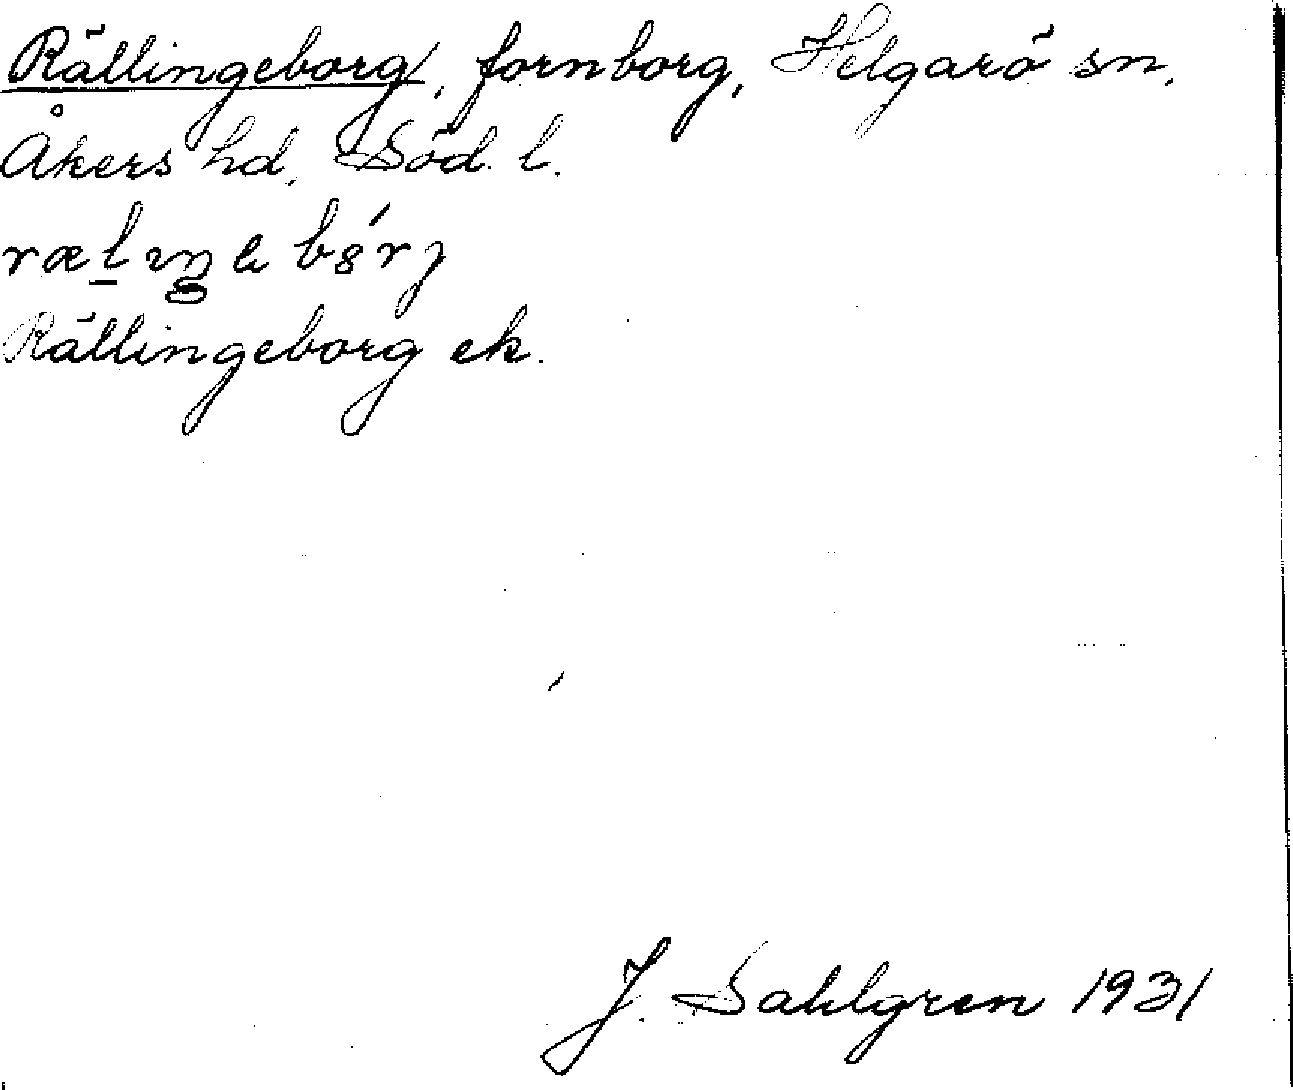 Rällingeborg, fornborg, Helgarö sn,
Åkers hd, Söd. l.
Rällingeborg ek.
J. Sahlgren 1931